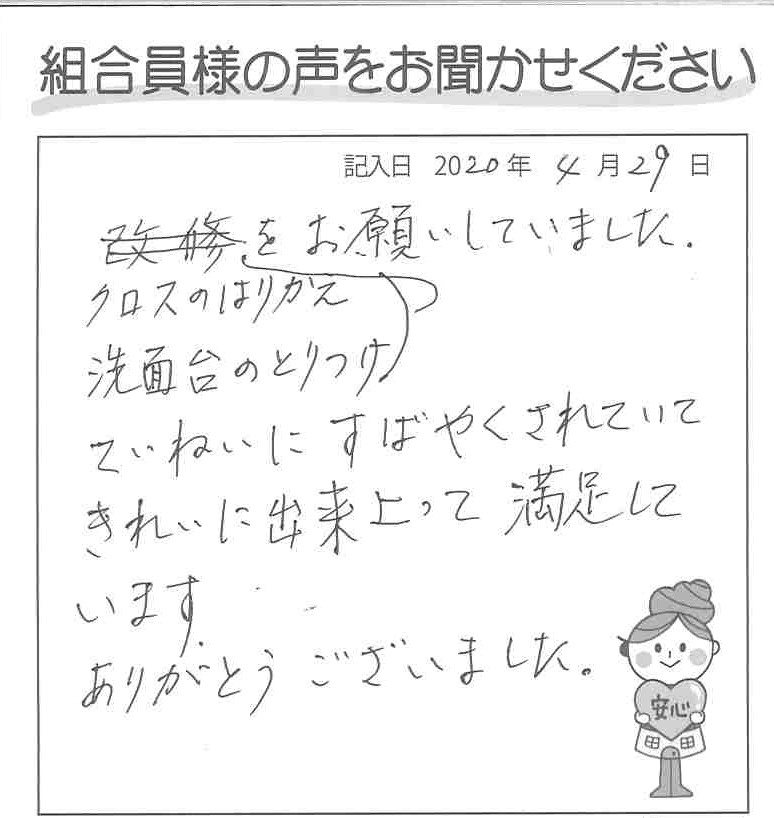 組合員様の声をお聞かせください
記入日 2020年 4月29日
改修をお願いしていました.
クロスのはりかえ
洗面台のとりつけ
ていねいにすばやくされていて
きれいに出来上って満足して
います.
ありがとうございました。
安心